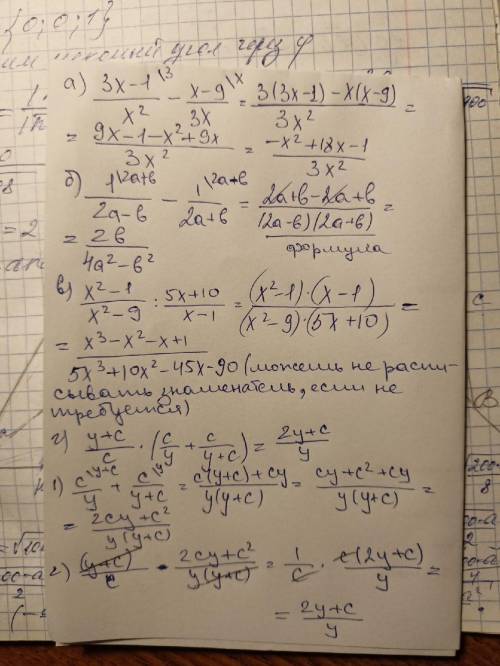 {0; 0; 1}
а) (3x-1)\3 / x² - (x-9)\x / 3x = (3(3x-1)-x(x-9)) / 3x² =
= (9x-1-x²+9x) / 3x² = (-x²+18x-1) / 3x²
б) 1\2a+в / (2a-в) - 1\2a+в / (2a+в) = (2a+в-2a+в) / ((2a-в)(2a+в)) =
формула
= 2в / (4a²-в²)
в) (x²-1) / (x²-9) : (5x+10) / (x-1) = ((x²-1)·(x-1)) / ((x²-9)·(5x+10)) =
= (x³-x²-x+1) / (5x³+10x²-45x-90) (можешь не распи-
сывать знаменатель, если не
требуется)
г) (y+c) / c · (c/y + c/(y+c)) = (2y+c) / y
1) c\y+c / y + c\y / (y+c) = (c(y+c)+cy) / (y(y+c)) = (cy+c²+cy) / (y(y+c)) =
= (2cy+c²) / (y(y+c))
2) (y+c) / c · (2cy+c²) / (y(y+c)) = 1/c · c(2y+c) / y =
= (2y+c) / y